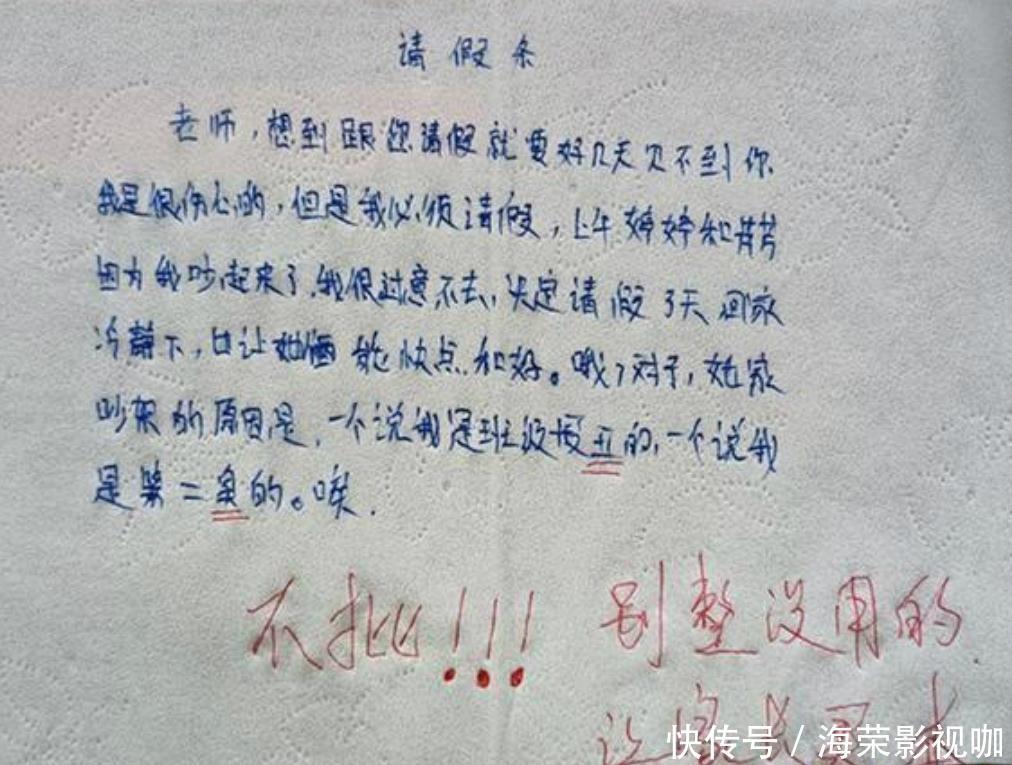 请假条
老师,想到跟您请假就要好几天见不到你
我是很伤心的,但是我必须请假,上午婷婷和芳芳
因为我吵起来了,我很过意不去,决定请假3天回家
冷静下,也让她俩能快点和好。哦,对了,她家
吵架的原因是,一个说我是班级最丑的,一个说我
是第二臭的。唉.
不批!!! 别整没用的
让
快传号/海荣影视咖